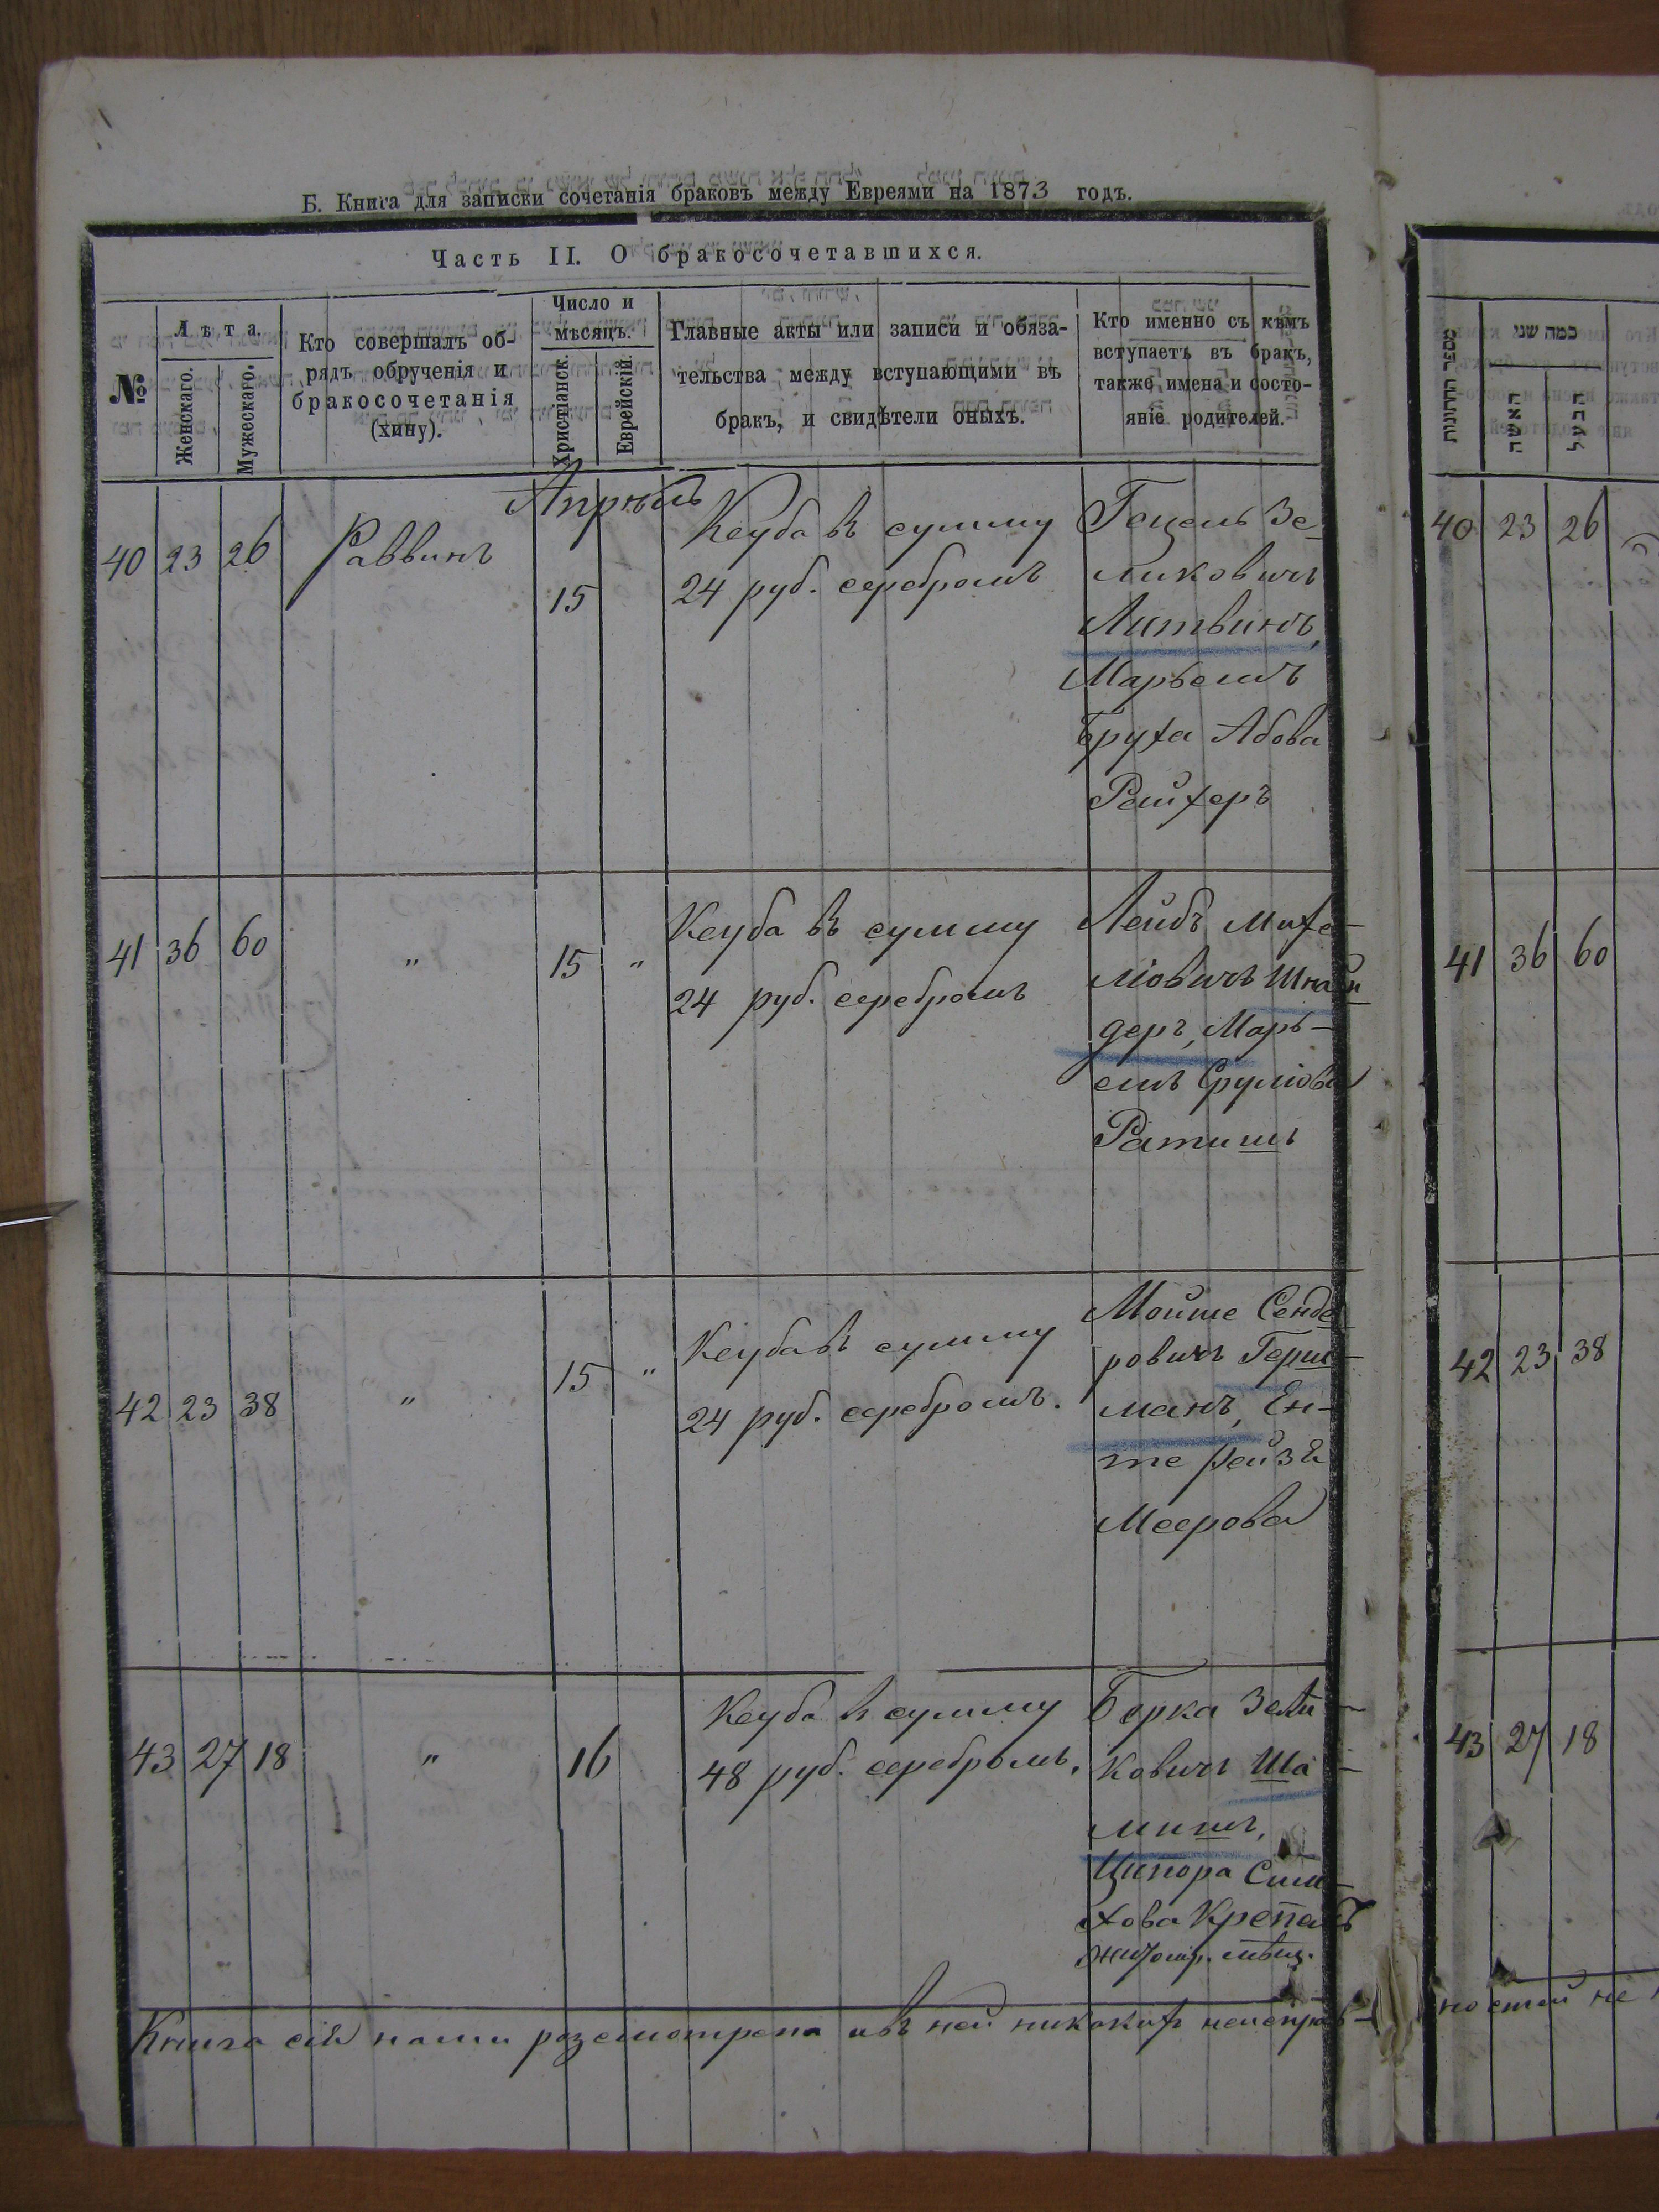 Б. Книга для записки сочетанія браковъ между Евреями на 1873 годъ.
Часть II. О бракосочетавшихся.
№
Лѣта.
Женскаго.
Мужескаго.
Кто совершалъ об-
рядъ обрученія и
бракосочетанія
(хину).
Число и
мѣсяцъ.
Христіанск.
Еврейскій.
Главные акты или записи и обяза-
тельства между вступающими въ
бракъ, и свидѣтели оныхъ.
Кто именно съ кѣмъ
вступаетъ въ бракъ,
также имена и состо-
яніе родителей.
Апрѣль
40 23 26 Раввинъ 15
Кеуба въ сумму
24 руб. серебромъ
Гецель Зе-
ликовичъ
Литвинъ,
Марьемъ
Бруха Абова
Райхеръ
41 36 60 " 15 "
Кеуба въ сумму
24 руб. серебромъ
Лейбъ Михе-
ліовичъ Шнай
деръ, Марь-
емъ Сруліова
Ратишъ
42 23 38 " 15 "
Кеуба въ сумму
24 руб. серебромъ.
Мойше Сенде
ровичъ Герш-
манъ, Ен-
те Рейзя
Меерова
43 27 18 " 16
Кеуба въ сумму
48 руб. серебромъ.
Берка Зели-
ковичъ Ша-
мишъ,
Ципора Сим-
хова
мѣщ.
Книга сія нами розсмотрена и въ ней никакихъ неисправ-
מספר החתונות
כמה שני
האשה
הבעל
40 23 26
41 36 60
42 23 38
43 27 18
ностей не